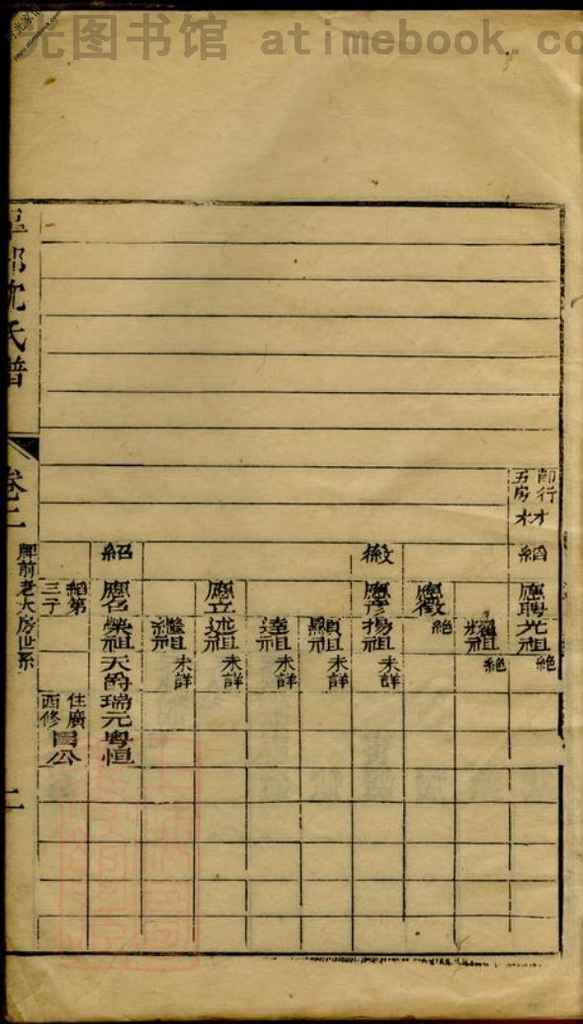 光图书馆 atimebook.co
郎沈氏譜
卷二
脾前老大房世系
二
五房
才
縚
應聘
光祖
絶
耀祖
絶
徽
應徵
絶
應彥
揚祖
未詳
顯祖
未詳
達祖
未詳
應立
述祖
未詳
繼祖
未詳
紹
應名
榮祖
天爵
瑞元
粤恒
縚第
三子
住廣
西修
公